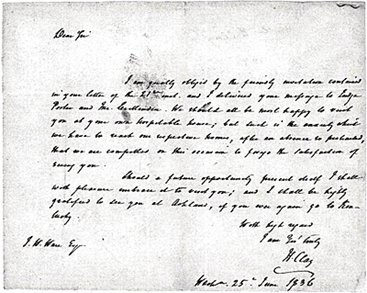 Dear Sir
I am greatly obliged by the friendly invitation contained
in your letter of the 23d inst. and I delivered your message to Judge
Porter and Mr. Crittenden. We should all be most happy to visit
you at your own hospitable house; but such is the anxiety which
we have to reach our respective homes, after an absence so protracted,
that we are compelled on this occasion to forego the satisfaction of
seeing you.
Should a future opportunity present itself I shall
with pleasure embrace it to visit you; and I shall be highly
gratified to see you at Ashland, if you ever again go to Ken-
tucky.
With high regard
I am Yrs truly
H. Clay
J. W. Ware Esq.
Washn. 25. June 1836